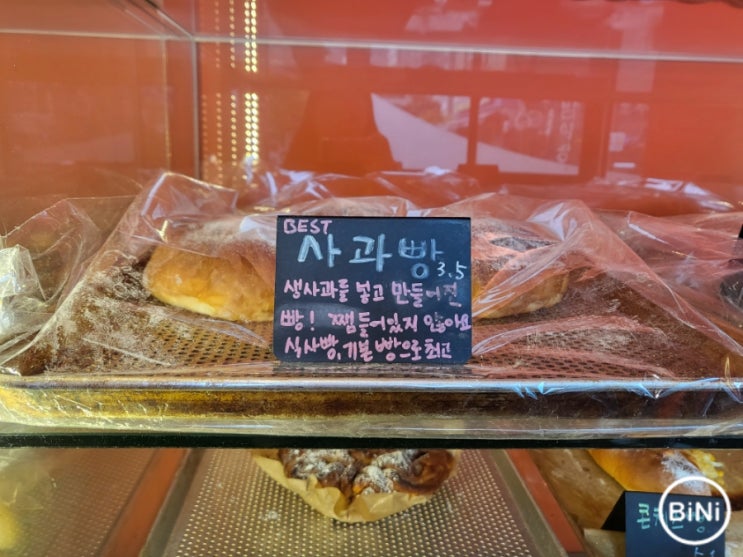 BEST
사과빵
3.5
생사과를 넣고 만들어진
빵! 쨈들어있지 않아요
식사빵, 기본 빵으로 최고
BiNi